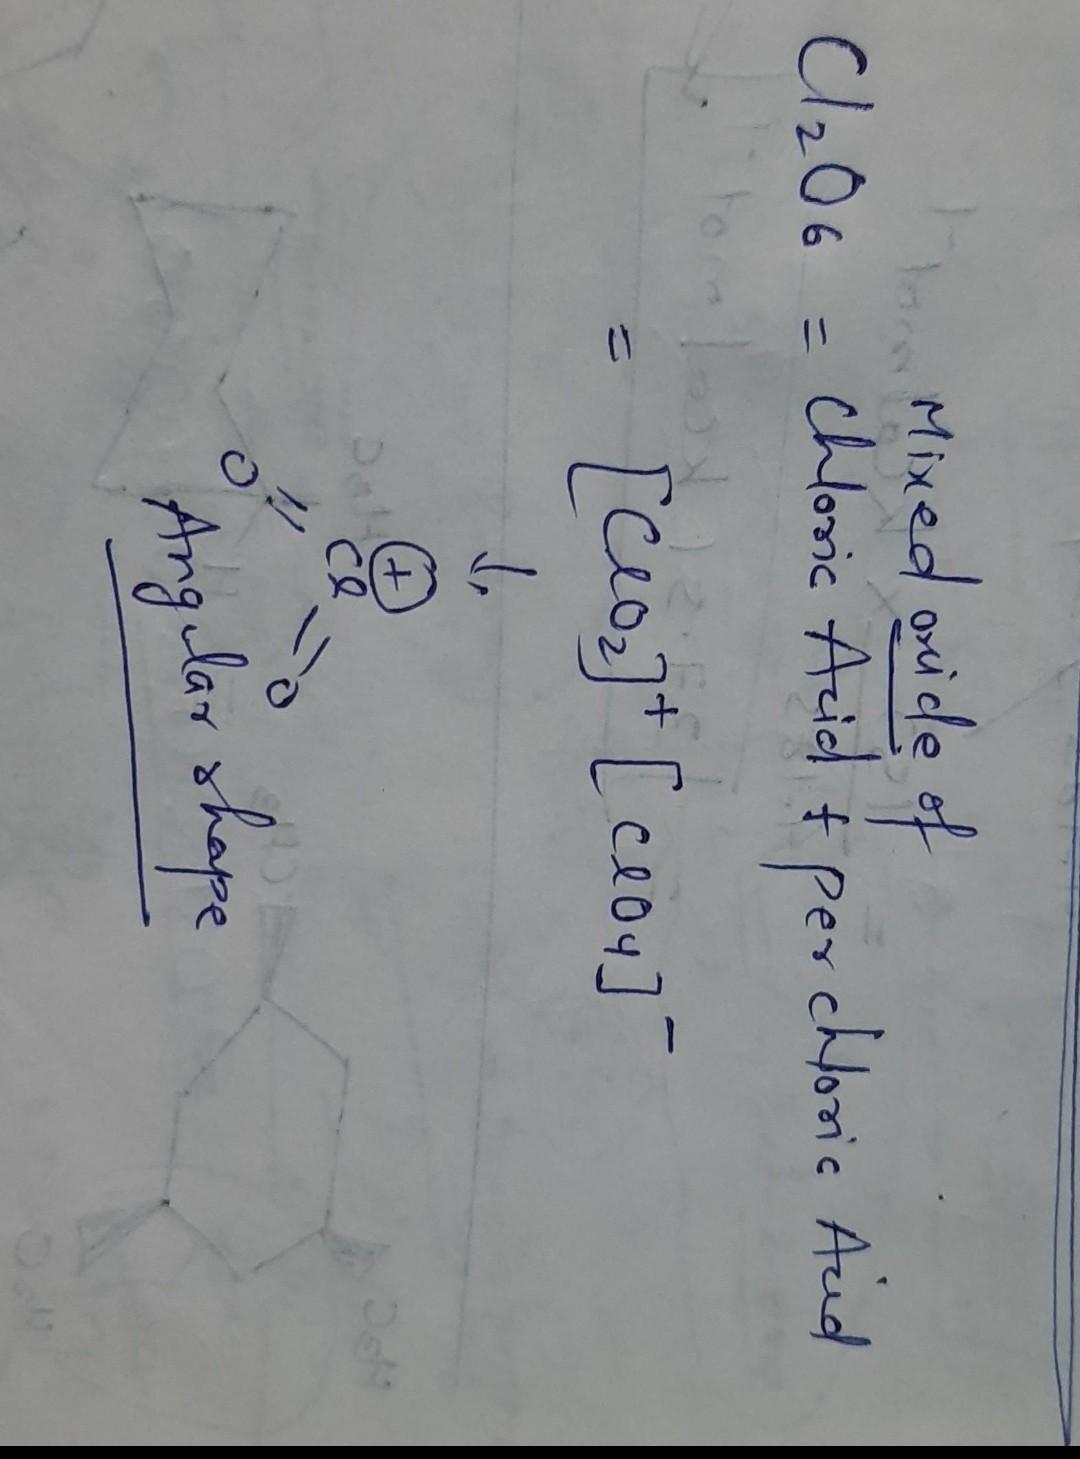 Mixed oxide of
Cl₂O₆ = Chloric Acid + Per chloric Acid
= [ClO₂]⁺ [ClO₄]⁻
↓
⊕
Cl
O = = O
Angular shape